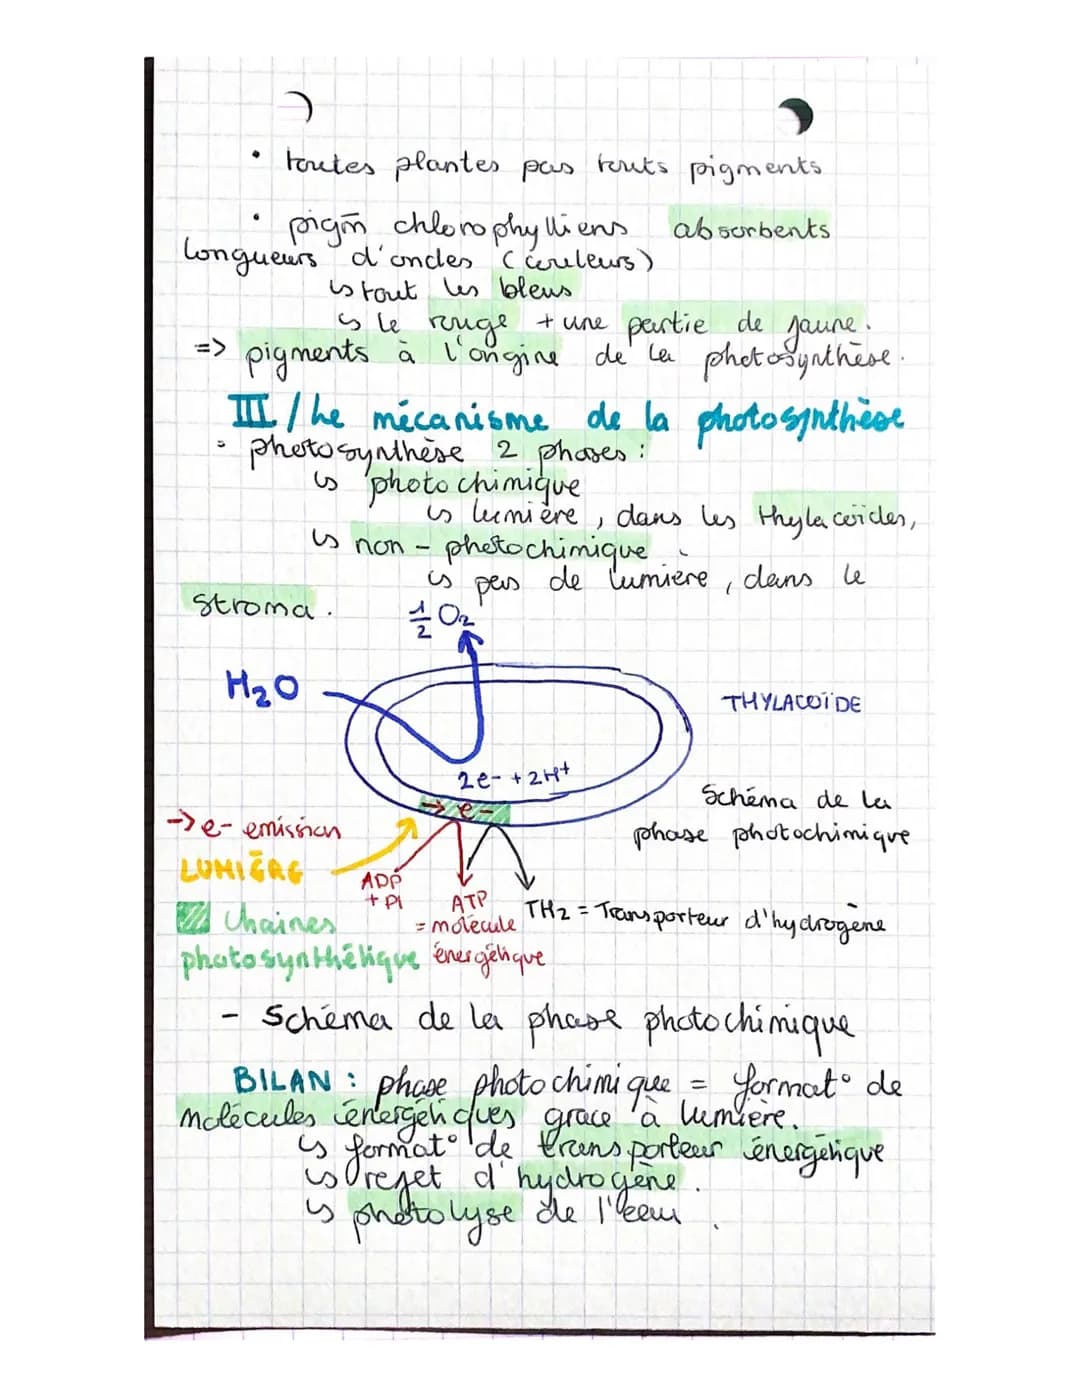 • toutes plantes pas touts pigments
• pigm̄ chlorophylliens absorbents
longueurs d'ondes (couleurs)
↳ tout les bleus
↳ le rouge + une partie de jaune.
=> pigments à l'origine de la photosynthèse.
III / Le mécanisme de la photosynthèse
• photosynthèse 2 phases :
↳ photochimique
↳ lumière, dans les thylacoïdes,
↳ non - photochimique
↳ pas de lumière, dans le
stroma.
½ O₂
H₂O
THYLACOÏDE
2e- + 2H+
-> e-
Schéma de la
phase photochimique
-> e- emission
LUMIÈRE
ADP
+ Pi
ATP
= molécule
énergétique
TH₂ = Transporteur d'hydrogène
Chaines
photosynthétique
- Schéma de la phase photochimique
BILAN : phase photochimique = format° de
molécules énergétiques grace à lumière.
↳ format° de transporteur énergétique
↳ rejet d'hydrogène.
↳ photolyse de l'eau.